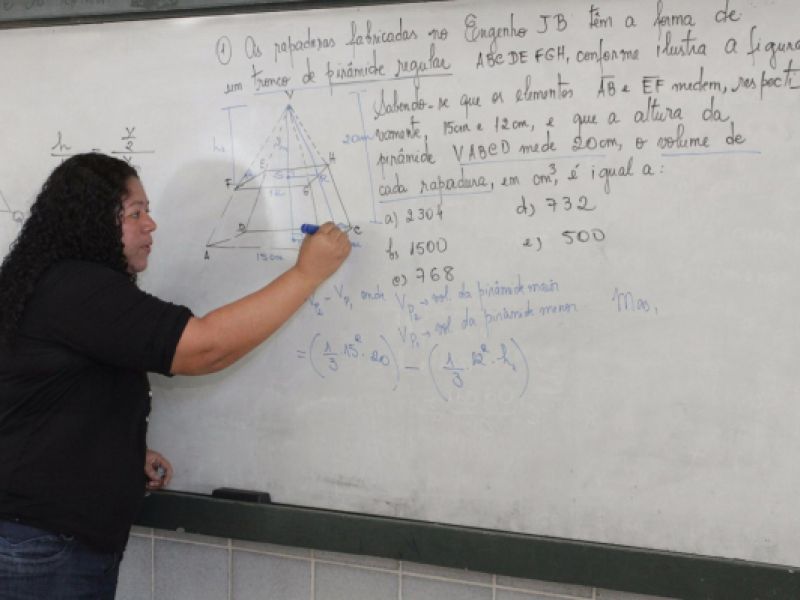 ① As rapaduras fabricadas no Engenho JB têm a forma de
um tronco de pirâmide regular ABCDEFGH, conforme ilustra a figura
Sabendo-se que os elementos AB e EF medem, respecti
vamente, 15cm e 12cm, e que a altura da
pirâmide VABCD mede 20cm, o volume de
cada rapadura, em cm³, é igual a:
a) 2304
d) 732
b) 1500
e) 500
c) 768
V
20cm
h
E
H
F
12
G
D
C
A
15cm
V_P2 - V_P1 onde V_P2 → vol da pirâmide maior
V_P1 → vol da pirâmide menor Mas,
= (1/3 · 15² · 20) - (1/3 · 12² · h₁)